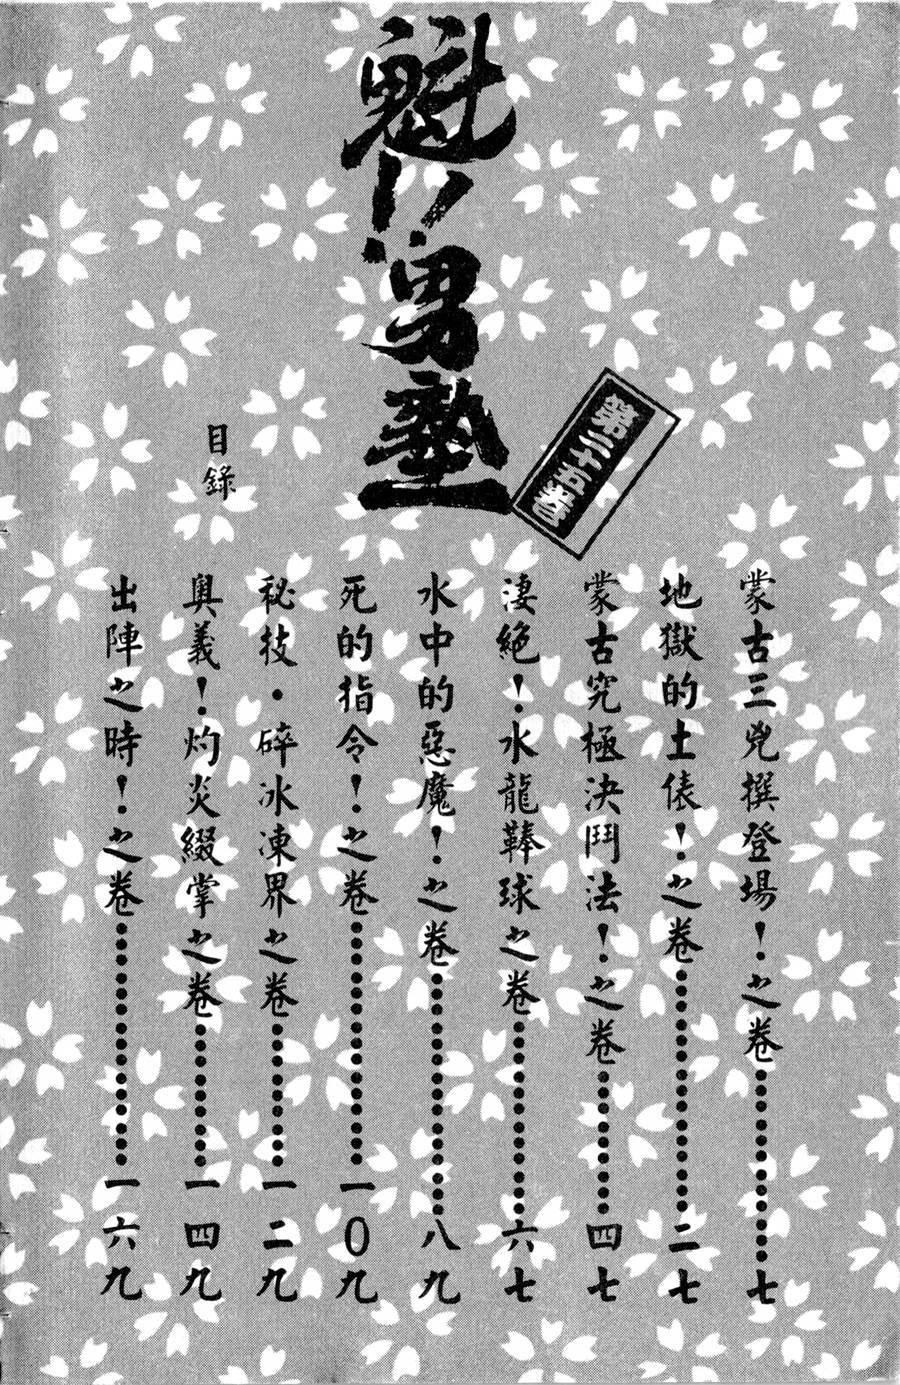 魁!!男塾
第二十五卷
目錄
蒙古三兇撰登場！之卷………………七
地獄的土俵！之卷………………二七
蒙古究極決鬥法！之卷………………四七
淒絕！水龍鞭球之卷………………六七
水中的惡魔！之卷………………八九
死的指令！之卷………………一〇九
秘技・碎冰凍界之卷………………一二九
奧義！灼炎綴掌之卷………………一四九
出陣之時！之卷………………一六九